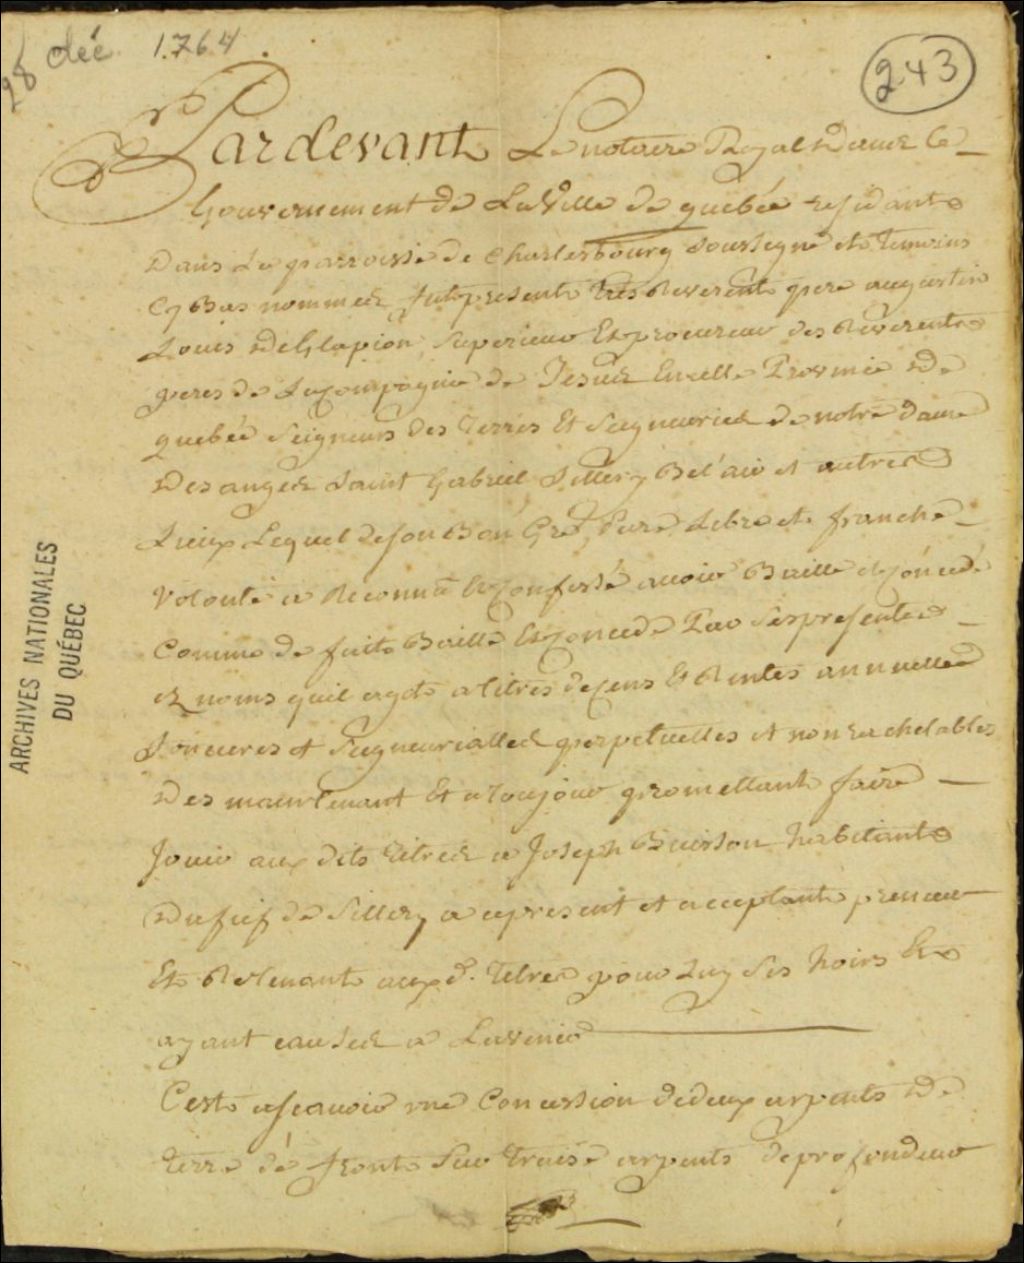 28 déc 1764.
243
Pardevant Le notaire Royal Dans le
Gouvernement de La Ville de quebéc residant
Dans La parroisse de Charlesbourg soussigné et temoins
Cy Bas nommez fut present tres Reverent pere augustin
Louis DeGlapion, superieur Et procureur des Reverents
peres de La Compagnie de Jesus En cette Province De
quebéc Seigneurs des Terres Et Seigneuries de notre dame
Des anges saint Gabriel Sillery Bel'air et autres
Lieux Lequel de son Bon Gré, Pure Libre et franche
Volonté a Reconnu Et Confessé avoir Baillé et Concedé
Comme de fait Baille Et Concede Par ses presentes
ez noms quil agit a titres de Cens Et Rentes annuelles
foncieres et seigneurialles perpetuelles et non rachetables
Des maintenant Et a toujour promettant faire
Jouir aux dits titres a Joseph Buisson habitant
Du fief de Sillery a ce present et acceptant preneur
Et Retenant aux d. Titres pour Luy Ses hoirs Et
ayant causes a L'avenir
C'est asçavoir une Concession de deux arpents De
terre dé front Sur treise arpents de profondeur
ARCHIVES NATIONALES
DU QUÉBEC